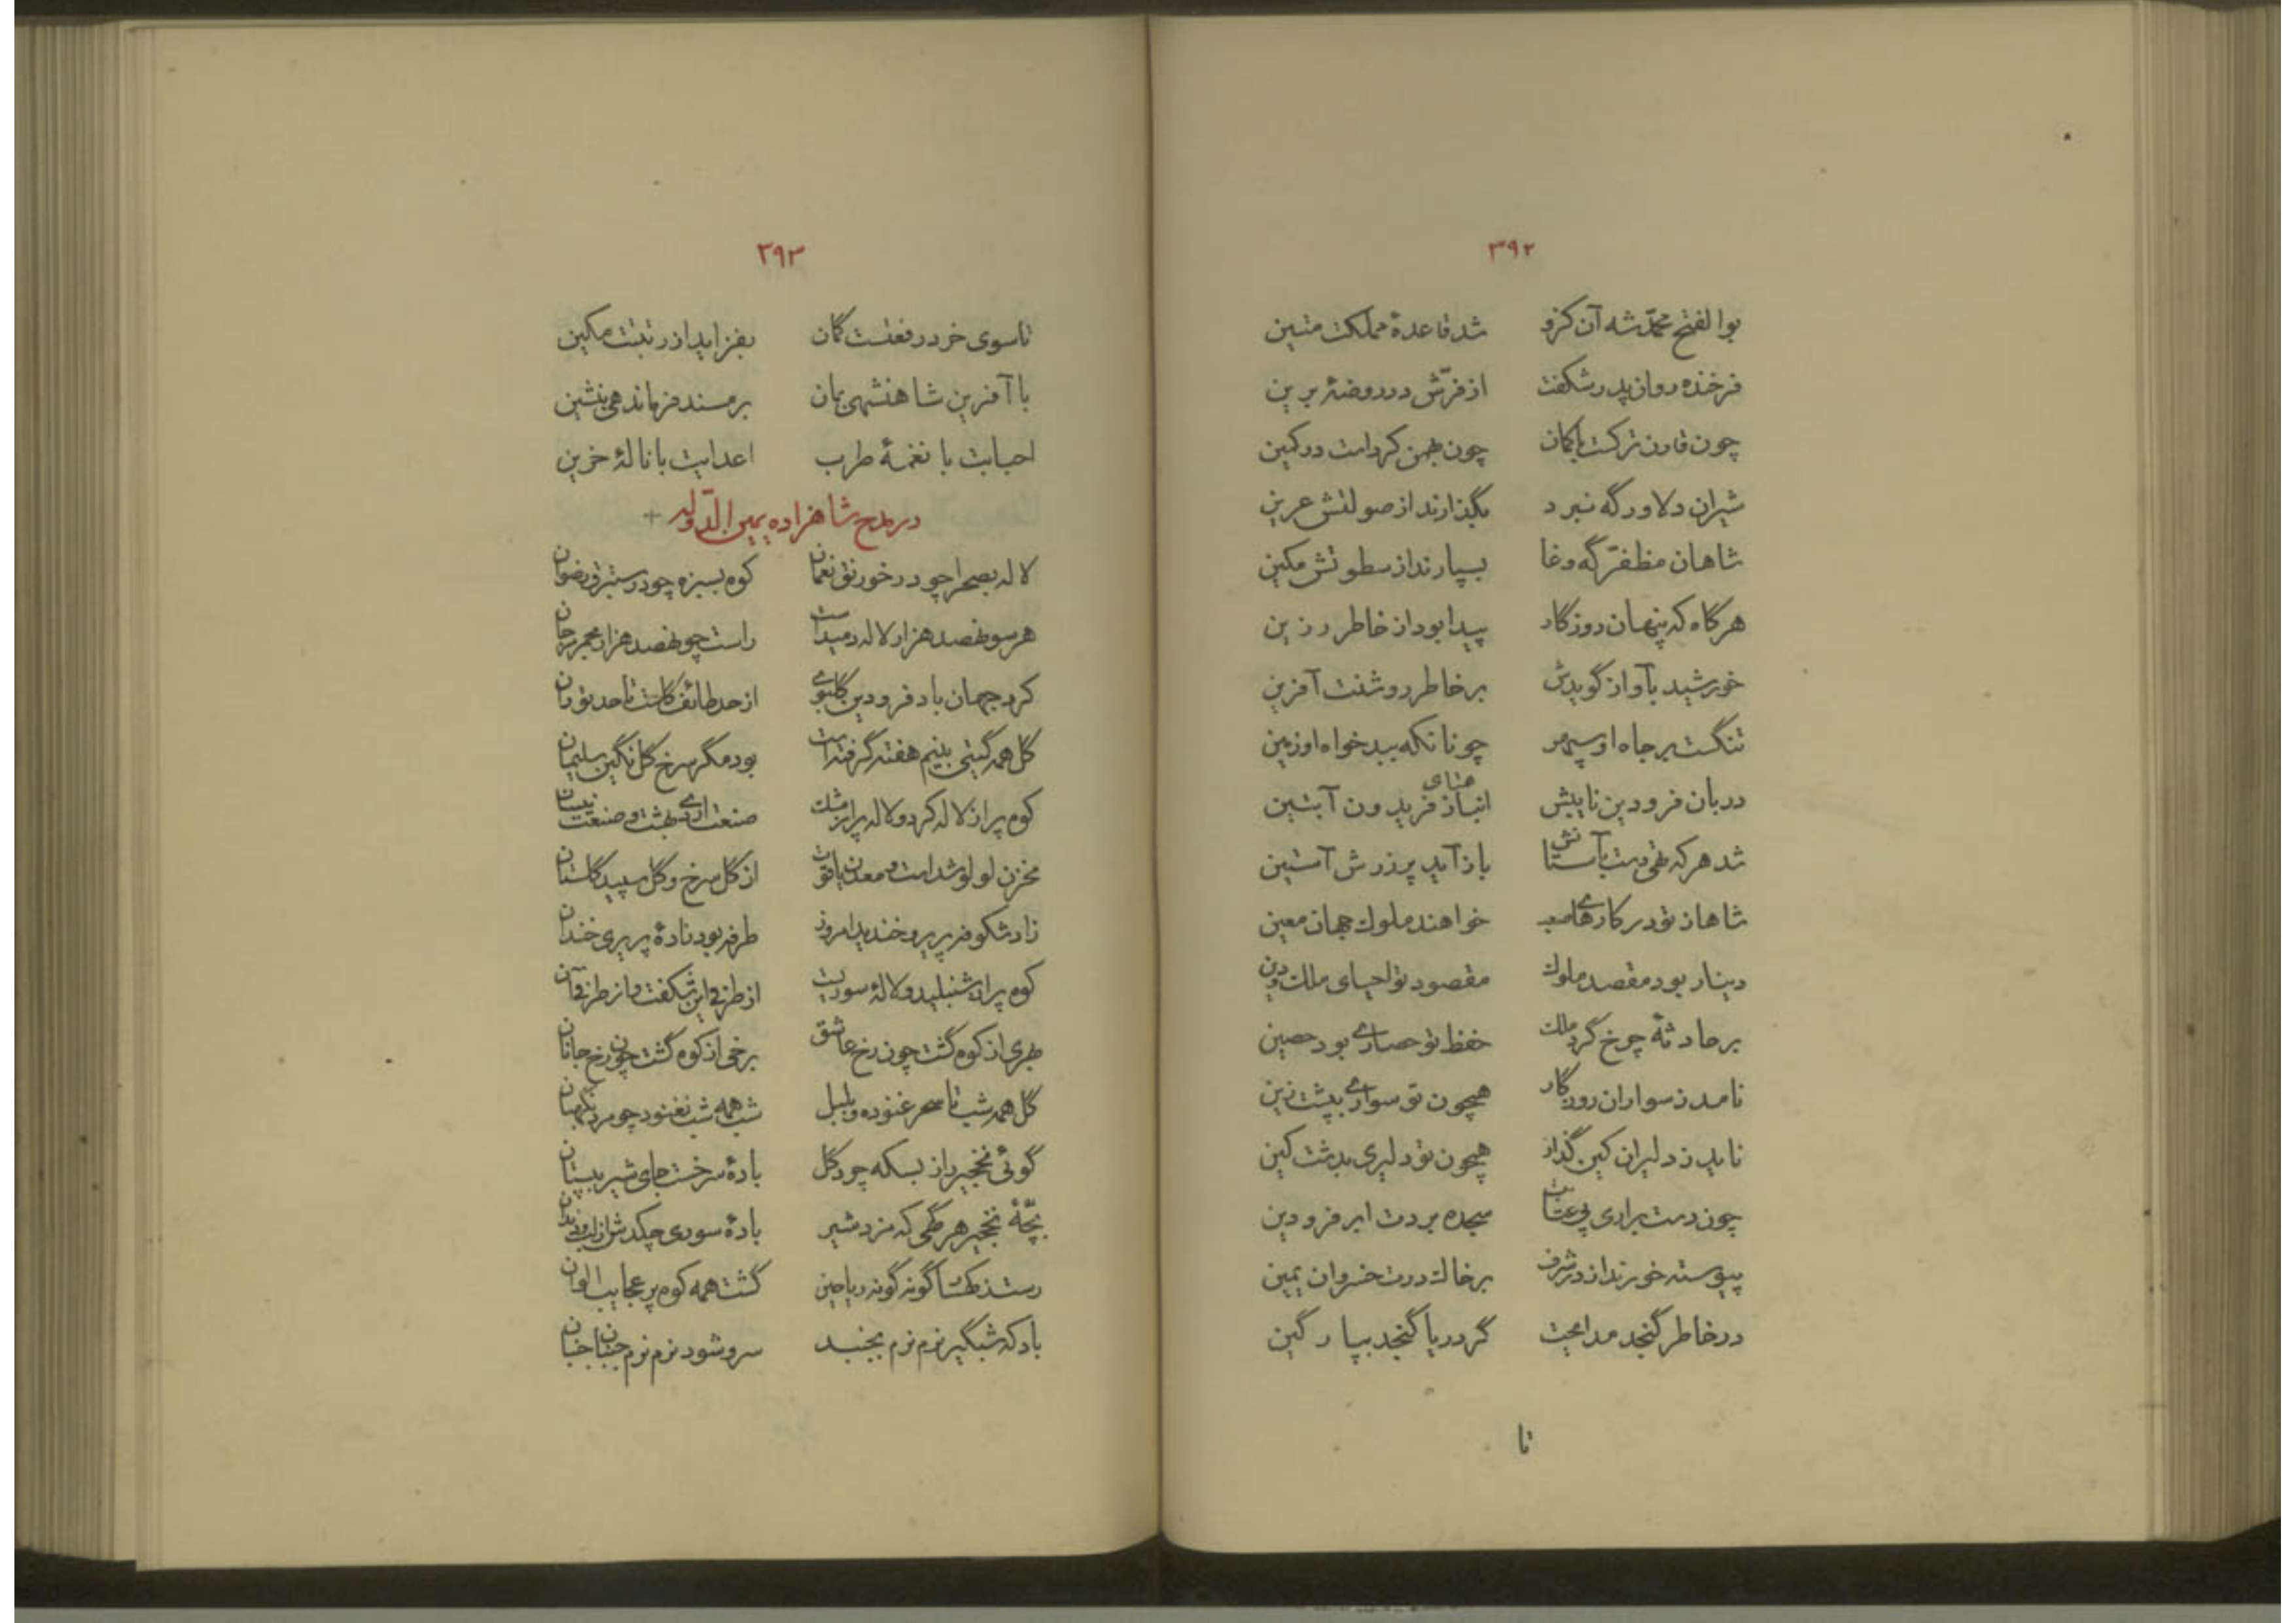 ۳۹۲
بوالفتح محمّد شه آن کزو شد قاعدهٔ مملکت متین
فرخنده روان پدر شکفت از فرّش در روضهٔ برین
چون قارن ترکست با کمان چون بهمن کرد است در کمین
شیران دلاور گه نبرد بگذارند از صولتش عرین
شاهان مظفّر گه وغا بسپارند از سطوتش مکین
هر گاه که پنهان روزگار پیدا بود از خاطر رزین
خورشید بآواز گویدش بر خاطر روشنت آفرین
تنگست بر جاه او سپهر چونانکه ببدخواه او زمین
دربان فرودین نایبش انباز فریدون آبتین
همتای
شد هر که تهی دست بآستانش باز آید پر زرش آستین
شاها ز تو در کارهای صعب خواهند ملوک جهان معین
دینار بود مقصد ملوک مقصود تو احیای ملک و دین
بر حادثهٔ چرخ گرد ملک حفظ تو حصاری بود حصین
نامد ز سواران روزگار همچون تو سواری بپشت زین
ناید ز دلیران کین گذار همچون تو دلیری بدشت کین
چون دست براری پی عتاب سجده بردت ابر فرودین
پیوسته خورند از در شرف بر خاک درت خسروان یمین
در خاطر گنجد مدایحت گر دریا گنجد بپارگین
تا
۳۹۳
تا سوی خرد رفعتست کان بفزاید از رتبت مکین
با آفرین شاهنشهی بمان بر مسند فرماندهی بنشین
احبابت با نغمهٔ طرب اعدایت با نالهٔ حزین
در مدح شاهزاده یمین الدّوله +
لاله بصحرا چو در خورنق نعمان کوه بسبزه چو در ستبرق رضوان
هر سو نهصد هزار لاله دمیداست راست چو نهصد هزار مجمر مرجان
کرد جهان باد فرودین گلبوی از حد طائف گلست تا حد توران
گل همه گیتی بنیم هفته گرفته است بود مگر سرخ گل نگین سلیمان
کوه پر از لاله کرد و لاله پر از مشک صنعت اردیبهشت و صنعت نیسان
مخزن لولو شداست و معدن یاقوت از گل سرخ و گل سپید گلستان
زاد شکوفه پریر و خندید امروز طرفه بود زادهٔ پریری خندان
کوه پر از شنبلید و لالهٔ سوریست از طرفی این شکفت و از طرفی آن
بهری از کوه گشت چون رخ عاشق برخی از کوه گشت چون رخ جانان
گل همه شب تا سحر غنوده و بلبل شب همه شب نغنود چو مرد نگهبان
گوئی نخجیر از بسکه چرد گل بادهٔ سرخست جای شیر بپستان
بچّهٔ نخجیر هر گهی که مزد شیر بادهٔ سوری چکدش از لب و دندان
رستند کهسا گونه گونه ریاحین گشت همه کوه پر عجایب الوان
باد که شبگیر نرم نرم بجنبد سرو شود نرم نرم جنبان جنبان